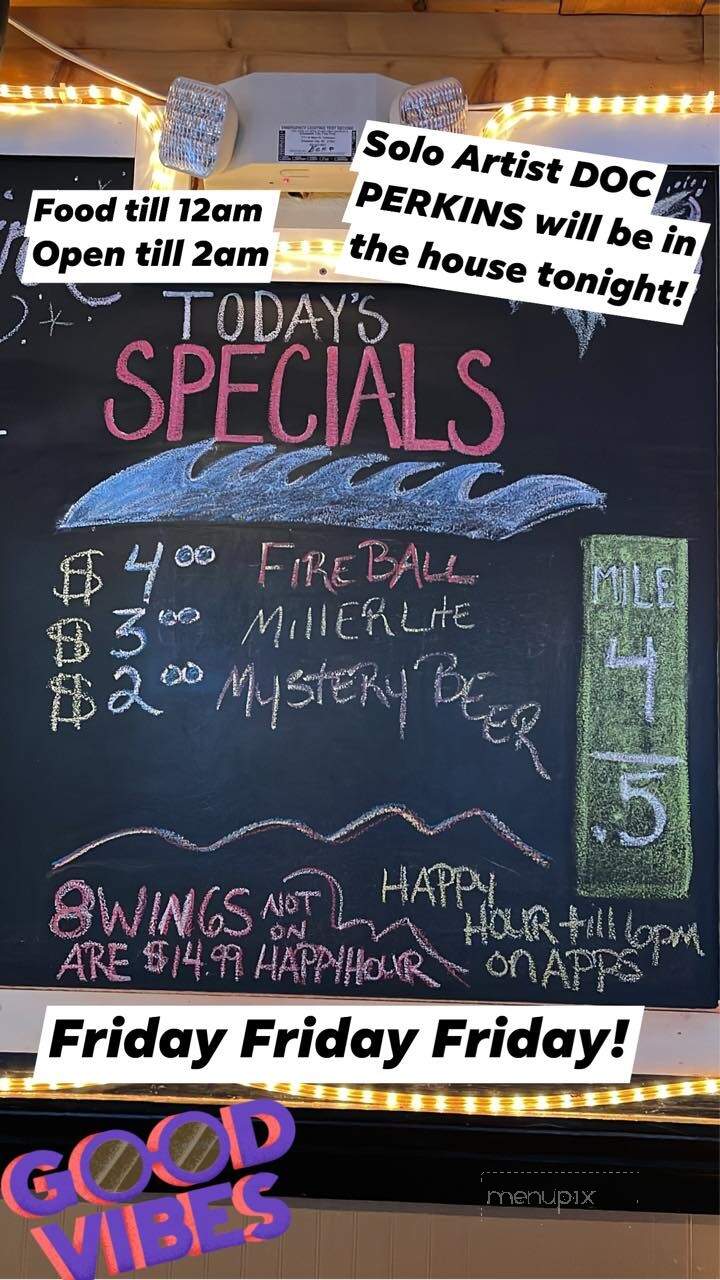 Solo Artist DOC
PERKINS will be in
the house tonight!
Food till 12am
Open till 2am
TODAY'S
SPECIALS
$ 4.00 FIREBALL
$ 3.00 MillER LitE
$ 2.00 MYSTERY BEER
MILE
4
.5
8 WINGS NOT ON
ARE $14.99 HAPPY HOUR
HAPPY
HOUR till 6pm
on APPS
Friday Friday Friday!
GOOD
VIBES
menupix